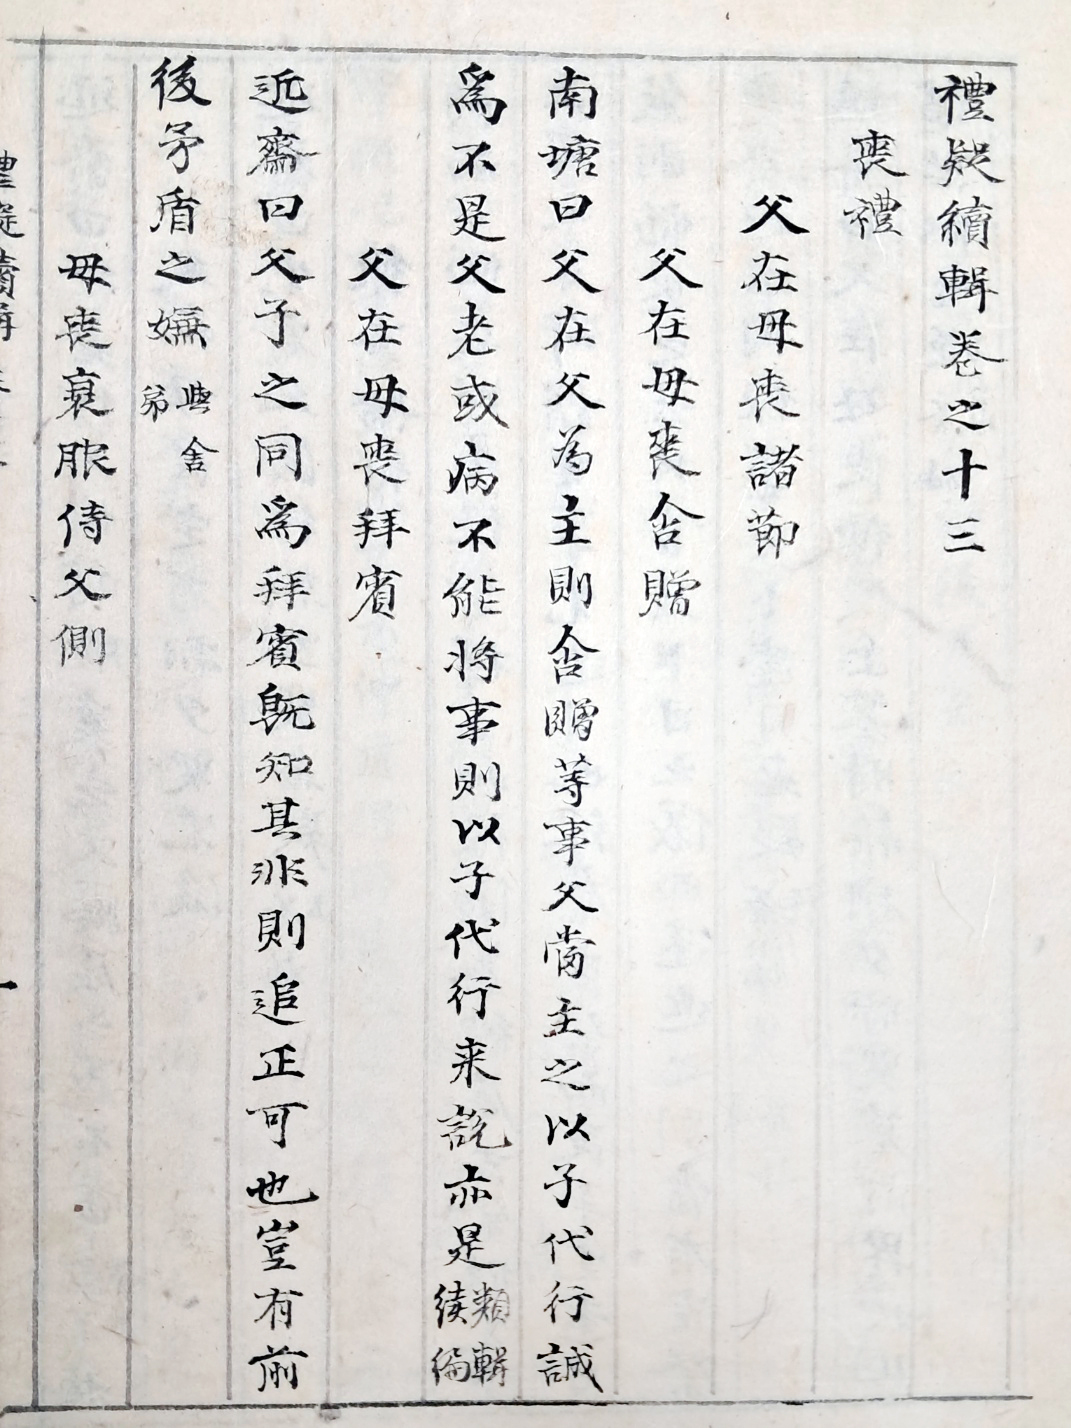 禮疑續輯卷之十三
喪禮
父在母喪諸節
父在母喪含贈
南塘曰父在父為主則含贈等事父當主之以子代行誠
爲不是父老或病不能將事則以子代行来説亦是類輯續編
父在母喪拜賓
近齋曰父子之同爲拜賓旣知其非則追正可也豈有前
後矛盾之嫌與舍弟
母喪衰服侍父側
禮疑續輯